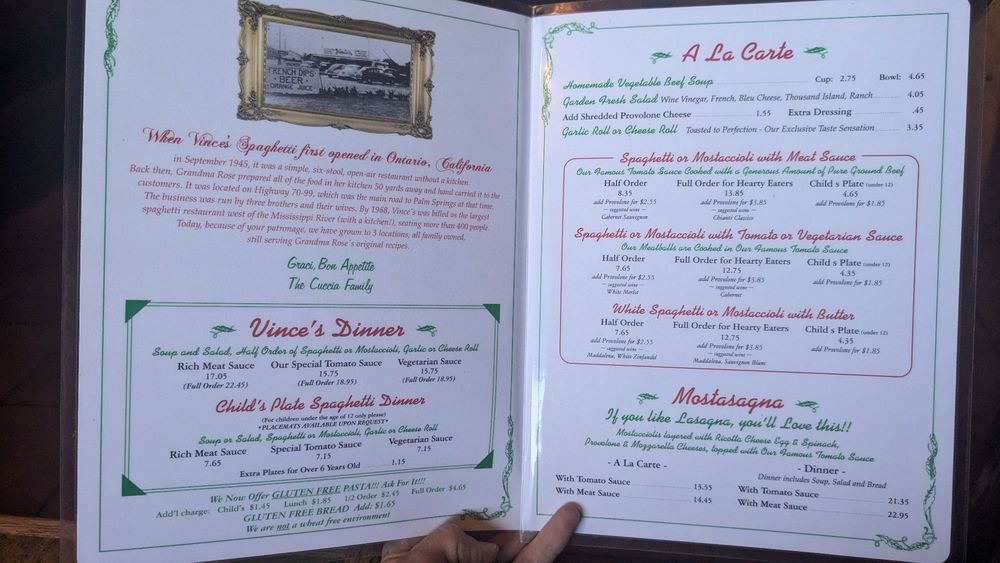 FRENCH DIPS
BEER
ORANGE JUICE
When Vince's Spaghetti first opened in Ontario, California
in September 1945, it was a simple, six-stool, open-air restaurant without a kitchen.
Back then, Grandma Rose prepared all of the food in her kitchen 50 yards away and hand carried it to the
customers. It was located on Highway 70-99, which was the main road to Palm Springs at that time.
The business was run by three brothers and their wives. By 1968, Vince's was billed as the largest
spaghetti restaurant west of the Mississippi River (with a kitchen!), seating more than 400 people.
Today, because of your patronage, we have grown to 3 locations, all family owned,
still serving Grandma Rose's original recipes.
Graci, Bon Appetite
The Cuccia Family
Vince's Dinner
Soup and Salad, Half Order of Spaghetti or Mostaccioli, Garlic or Cheese Roll
Rich Meat Sauce Our Special Tomato Sauce Vegetarian Sauce
17.05 15.75 15.75
(Full Order 22.45) (Full Order 18.95) (Full Order 18.95)
Child's Plate Spaghetti Dinner
(For children under the age of 12 only please)
*PLACEMATS AVAILABLE UPON REQUEST*
Soup or Salad, Spaghetti or Mostaccioli, Garlic or Cheese Roll
Rich Meat Sauce Special Tomato Sauce Vegetarian Sauce
7.65 7.15 7.15
Extra Plates for Over 6 Years Old 1.15
We Now Offer GLUTEN FREE PASTA!!! Ask For It!!!
Add'l charge: Child's $1.45 Lunch $1.85 1/2 Order $2.45 Full Order $4.65
GLUTEN FREE BREAD Add: $1.65
We are not a wheat free environment
A La Carte
Homemade Vegetable Beef Soup Cup: 2.75 Bowl: 4.65
Garden Fresh Salad Wine Vinegar, French, Bleu Cheese, Thousand Island, Ranch 4.05
Add Shredded Provolone Cheese 1.55 Extra Dressing .45
Garlic Roll or Cheese Roll Toasted to Perfection - Our Exclusive Taste Sensation 3.35
Spaghetti or Mostaccioli with Meat Sauce
Our Famous Tomato Sauce Cooked with a Generous Amount of Pure Ground Beef
Half Order Full Order for Hearty Eaters Child s Plate (under 12)
8.35 13.85 4.65
add Provolone for $2.55 add Provolone for $3.85 add Provolone for $1.85
~ suggested wine ~ ~ suggested wine ~
Cabernet Sauvignon Chianti Classico
Spaghetti or Mostaccioli with Tomato or Vegetarian Sauce
Our Meatballs are Cooked in Our Famous Tomato Sauce
Half Order Full Order for Hearty Eaters Child s Plate (under 12)
7.65 12.75 4.35
add Provolone for $2.55 add Provolone for $3.85 add Provolone for $1.85
~ suggested wine ~ ~ suggested wine ~
White Merlot Cabernet
White Spaghetti or Mostaccioli with Butter
Half Order Full Order for Hearty Eaters Child s Plate (under 12)
7.65 12.75 4.35
add Provolone for $2.55 add Provolone for $3.85 add Provolone for $1.85
~ suggested wine ~ ~ suggested wine ~
Maddalena, White Zinfandel Maddalena, Sauvignon Blanc
Mostasagna
If you like Lasagna, you'll Love this!!
Mostacciolis layered with Ricotta Cheese Egg & Spinach,
Provolone & Mozzarella Cheeses, topped with Our Famous Tomato Sauce
- A La Carte -
With Tomato Sauce 13.55
With Meat Sauce 14.45
- Dinner -
Dinner includes Soup, Salad and Bread
With Tomato Sauce 21.35
With Meat Sauce 22.95